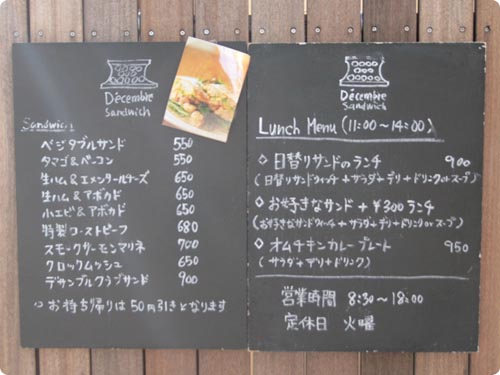 Décembre
Sandwich
Sandwich
ベジタブルサンド 550
タマゴ&ベーコン 550
生ハム&エメンタールチーズ 650
生ハム&アボカド 650
小エビ&アボカド 650
特製ローストビーフ 680
スモークサーモンマリネ 700
クロックムッシュ 650
デサンブルクラブサンド 900
お持ち帰りは50円引きとなります
Décembre
Sandwich
Lunch Menu (11:00~14:00)
◇日替りサンドのランチ 900
(日替りサンドウィッチ+サラダ+デリ+ドリンクorスープ)
◇お好きなサンド+¥300ランチ
(お好きなサンドウィッチ+サラダ+デリ+ドリンクorスープ)
◇オムチキンカレープレート 950
(サラダ+デリ+ドリンク)
営業時間 8:30~18:00
定休日 火曜